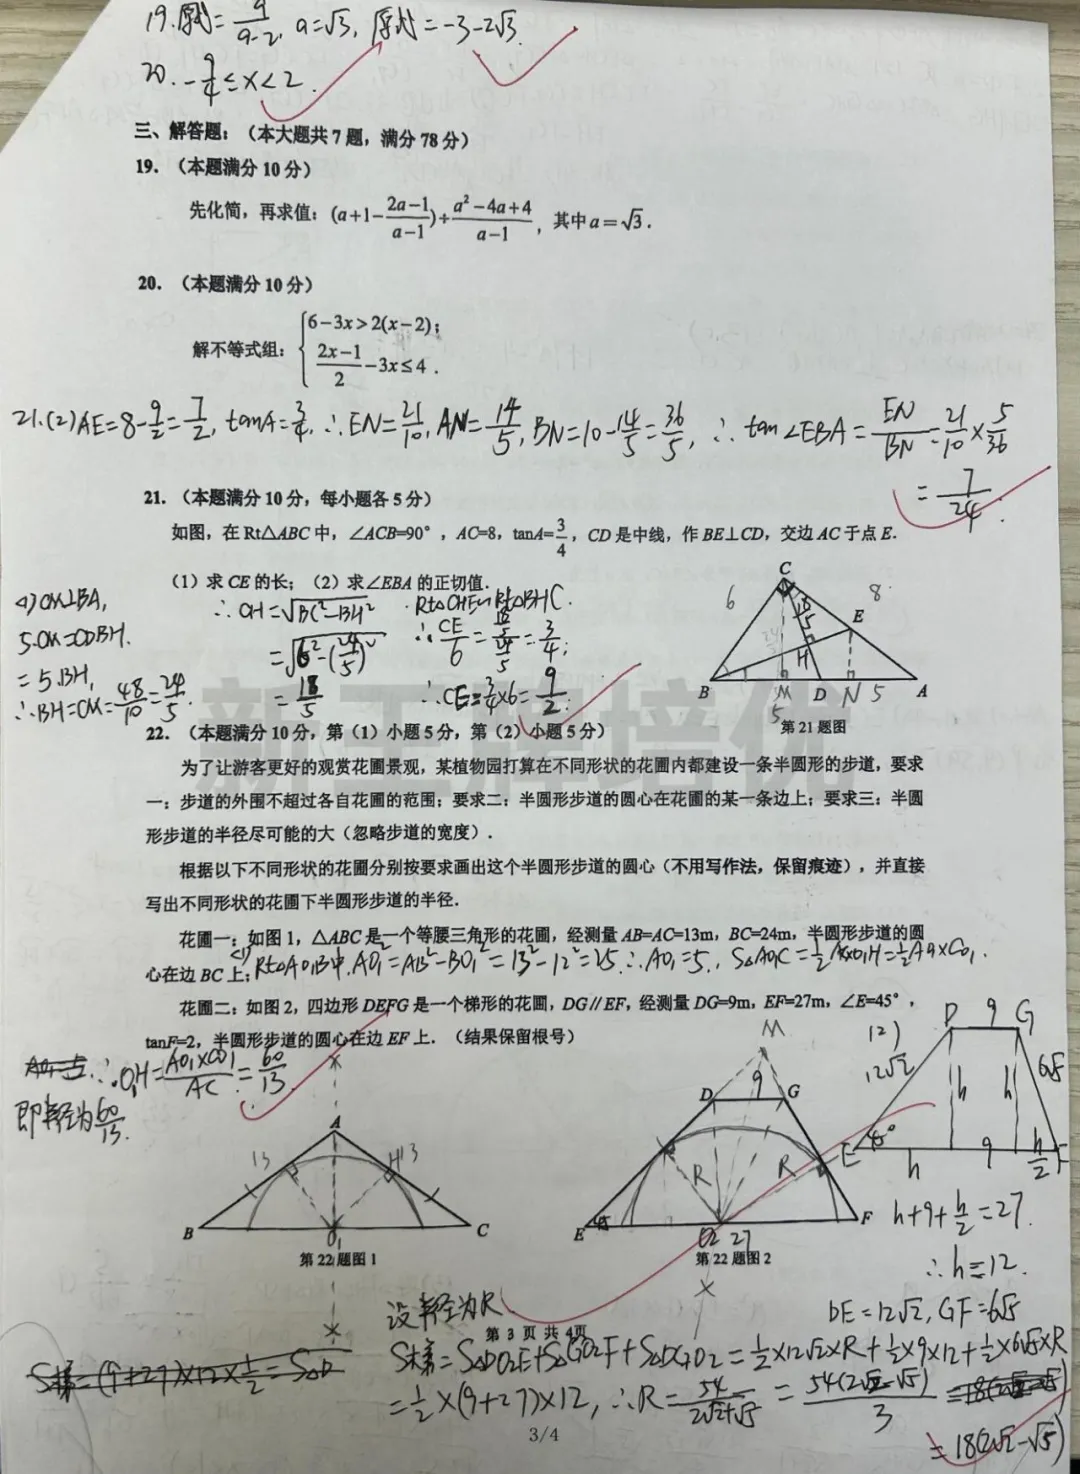 19.原式=a/(a-2), a=√3, 原式=-3-2√3.
20. -9/4≤x<2.
三、解答题:(本大题共7题,满分78分)
19.(本题满分10分)
先化简,再求值:(a+1-(2a-1)/(a-1))÷(a²-4a+4)/(a-1),其中a=√3.
20.(本题满分10分)
解不等式组:{6-3x>2(x-2);
(2x-1)/2-3x≤4.
21.(2)AE=8-9/2=7/2, tanA=3/4, ∴EN=21/10, AN=14/5, BN=10-14/5=36/5, ∴tan∠EBA=EN/BN=21/10×5/36
=7/24.
21.(本题满分10分,每小题各5分)
如图,在Rt△ABC中,∠ACB=90°,AC=8,tanA=3/4,CD是中线,作BE⊥CD,交边AC于点E.
(1)求CE的长;(2)求∠EBA的正切值.
CM⊥BA,
5·CM=CD·BH.
=5·BH,
∴BH=CM=48/10=24/5.
∴CH=√(BC²-BH²)
=√(6²-(24/5)²)
=18/5
Rt△CHE∽Rt△BHC.
∴CE/6=(18/5)/(24/5)=3/4;
∴CE=3/4×6=9/2.
C
6
8
E
H
B
M
D
N
5
A
5
第21题图
22.(本题满分10分,第(1)小题5分,第(2)小题5分)
新王牌培优
为了让游客更好的观赏花圃景观,某植物园打算在不同形状的花圃内都建设一条半圆形的步道,要求
一:步道的外围不超过各自花圃的范围;要求二:半圆形步道的圆心在花圃的某一条边上;要求三:半圆
形步道的半径尽可能的大(忽略步道的宽度).
根据以下不同形状的花圃分别按要求画出这个半圆形步道的圆心(不用写作法,保留痕迹),并直接
写出不同形状的花圃下半圆形步道的半径.
花圃一:如图1,△ABC是一个等腰三角形的花圃,经测量AB=AC=13m,BC=24m,半圆形步道的圆
心在边BC上;
(1)Rt△AO₁B中,AO₁²=AB²-BO₁²=13²-12²=25.∴AO₁=5., S△AO₁C=1/2AC×O₁H=1/2AO₁×CO₁.
花圃二:如图2,四边形DEFG是一个梯形的花圃,DG∥EF,经测量DG=9m,EF=27m,∠E=45°,
tanF=2,半圆形步道的圆心在边EF上.(结果保留根号)
∴O₁H=(AO₁×CO₁)/AC=60/13.
即半径为60/13.
A
13
H
13
B
O₁
C
第22题图1
M
D
9
G
R
R
E
45
O2
27
F
第22题图2
(2)
D
9
G
12√2
h
h
6√5
E
45°
h
9
h/2
F
h+9+h/2=27.
∴h=12.
DE=12√2, GF=6√5
设半径为R
第 3 页 共 4页
S梯=S△DO2E+S△GO2F+S△DGO2=1/2×12√2×R+1/2×9×12+1/2×6√5×R
=1/2×(9+27)×12, ∴R=54/(2√2+√5)=54(2√2-√5)/3
=18(2√2-√5)
3/4